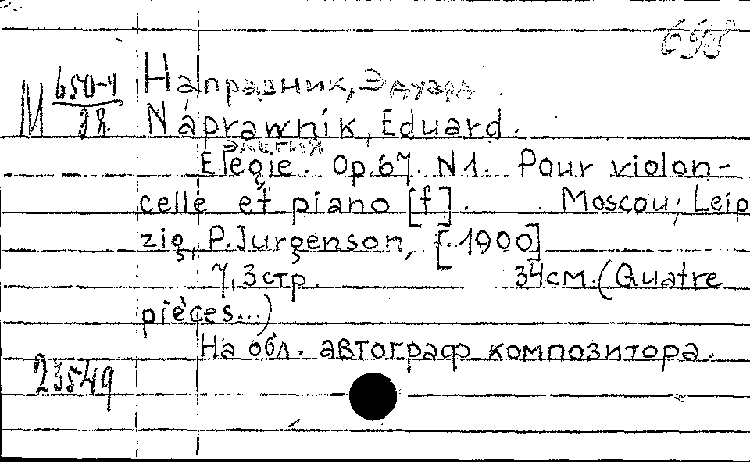 698
М 650-4/38
Направник, Эдуард
Náprawnik, Eduard.
Элегия
Elégie. Op.67. N1. Pour violon-
celle et piano [f]. Moscou; Leip
zig, P. Jurgenson, [1900]
7,3 стр. 34см. (Quatre
pièces...)
На обл. автограф композитора.
23549